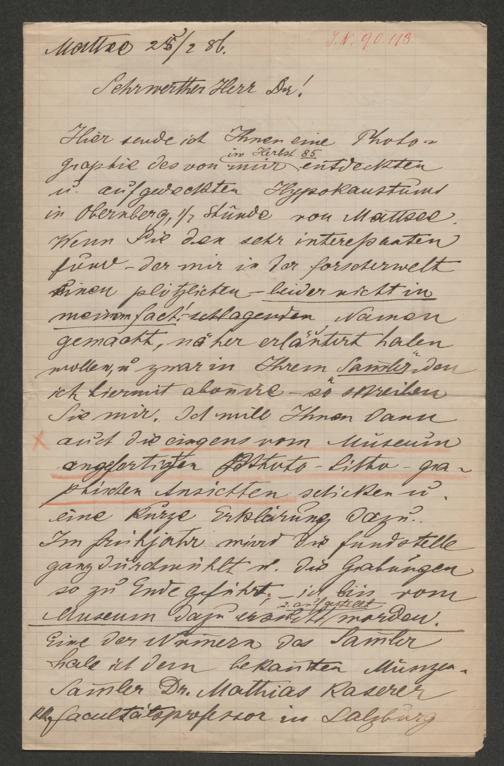 Mattsee 25/2 86.
J.N. 90.113
Sehrwerther Herr Dr!
Hier sende ich Ihnen eine Photo-
im Herbst 85
graphie des von mir entdeckten
u. aufgedeckten Hypokaustums
in Obernberg, 1/2 Stunde von Mattsee.
Wenn Sie den sehr interessanten
Fund – der mir in der Forscherwelt
einen plötzlichen – leider nicht in
meinem Fach! – schlagenden Namen
gemacht, näher erläutert haben
wollen, u zwar in Ihrem „Samler“, den
ich hiermit abonnire – so schreiben
Sie mir. Ich will Ihnen dann
auch die eigens vom Museum
angefertigten Photo-Litho-gra-
phischen Ansichten schicken u.
eine kurze Erklärung dazu.
Im Frühjahr wird die Fundstelle
ganz durchwühlt u. die Grabungen
so zu Ende geführt, – ich bin vom
aufgestellt
Museum dazu worden.
Eine der Numern des Samler
habe ich dem bekannten Münzen-
Samler Dr. Mathias Kaserer
Facultätsprofessor in Salzburg